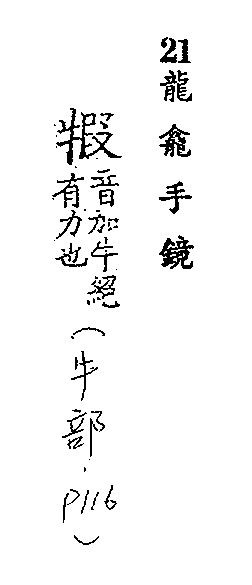 21龍龕手鏡
音加牛絕
有力也
（牛部．P116）